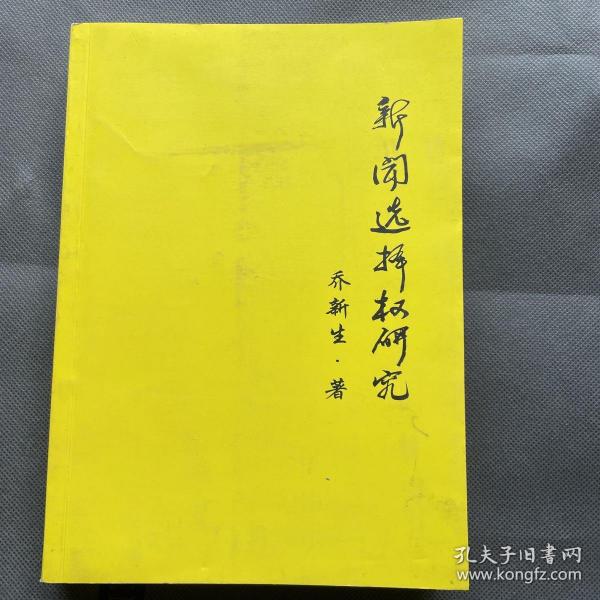 新闻选择权研究
乔新生·著
孔夫子旧書网
www.kongfz.com